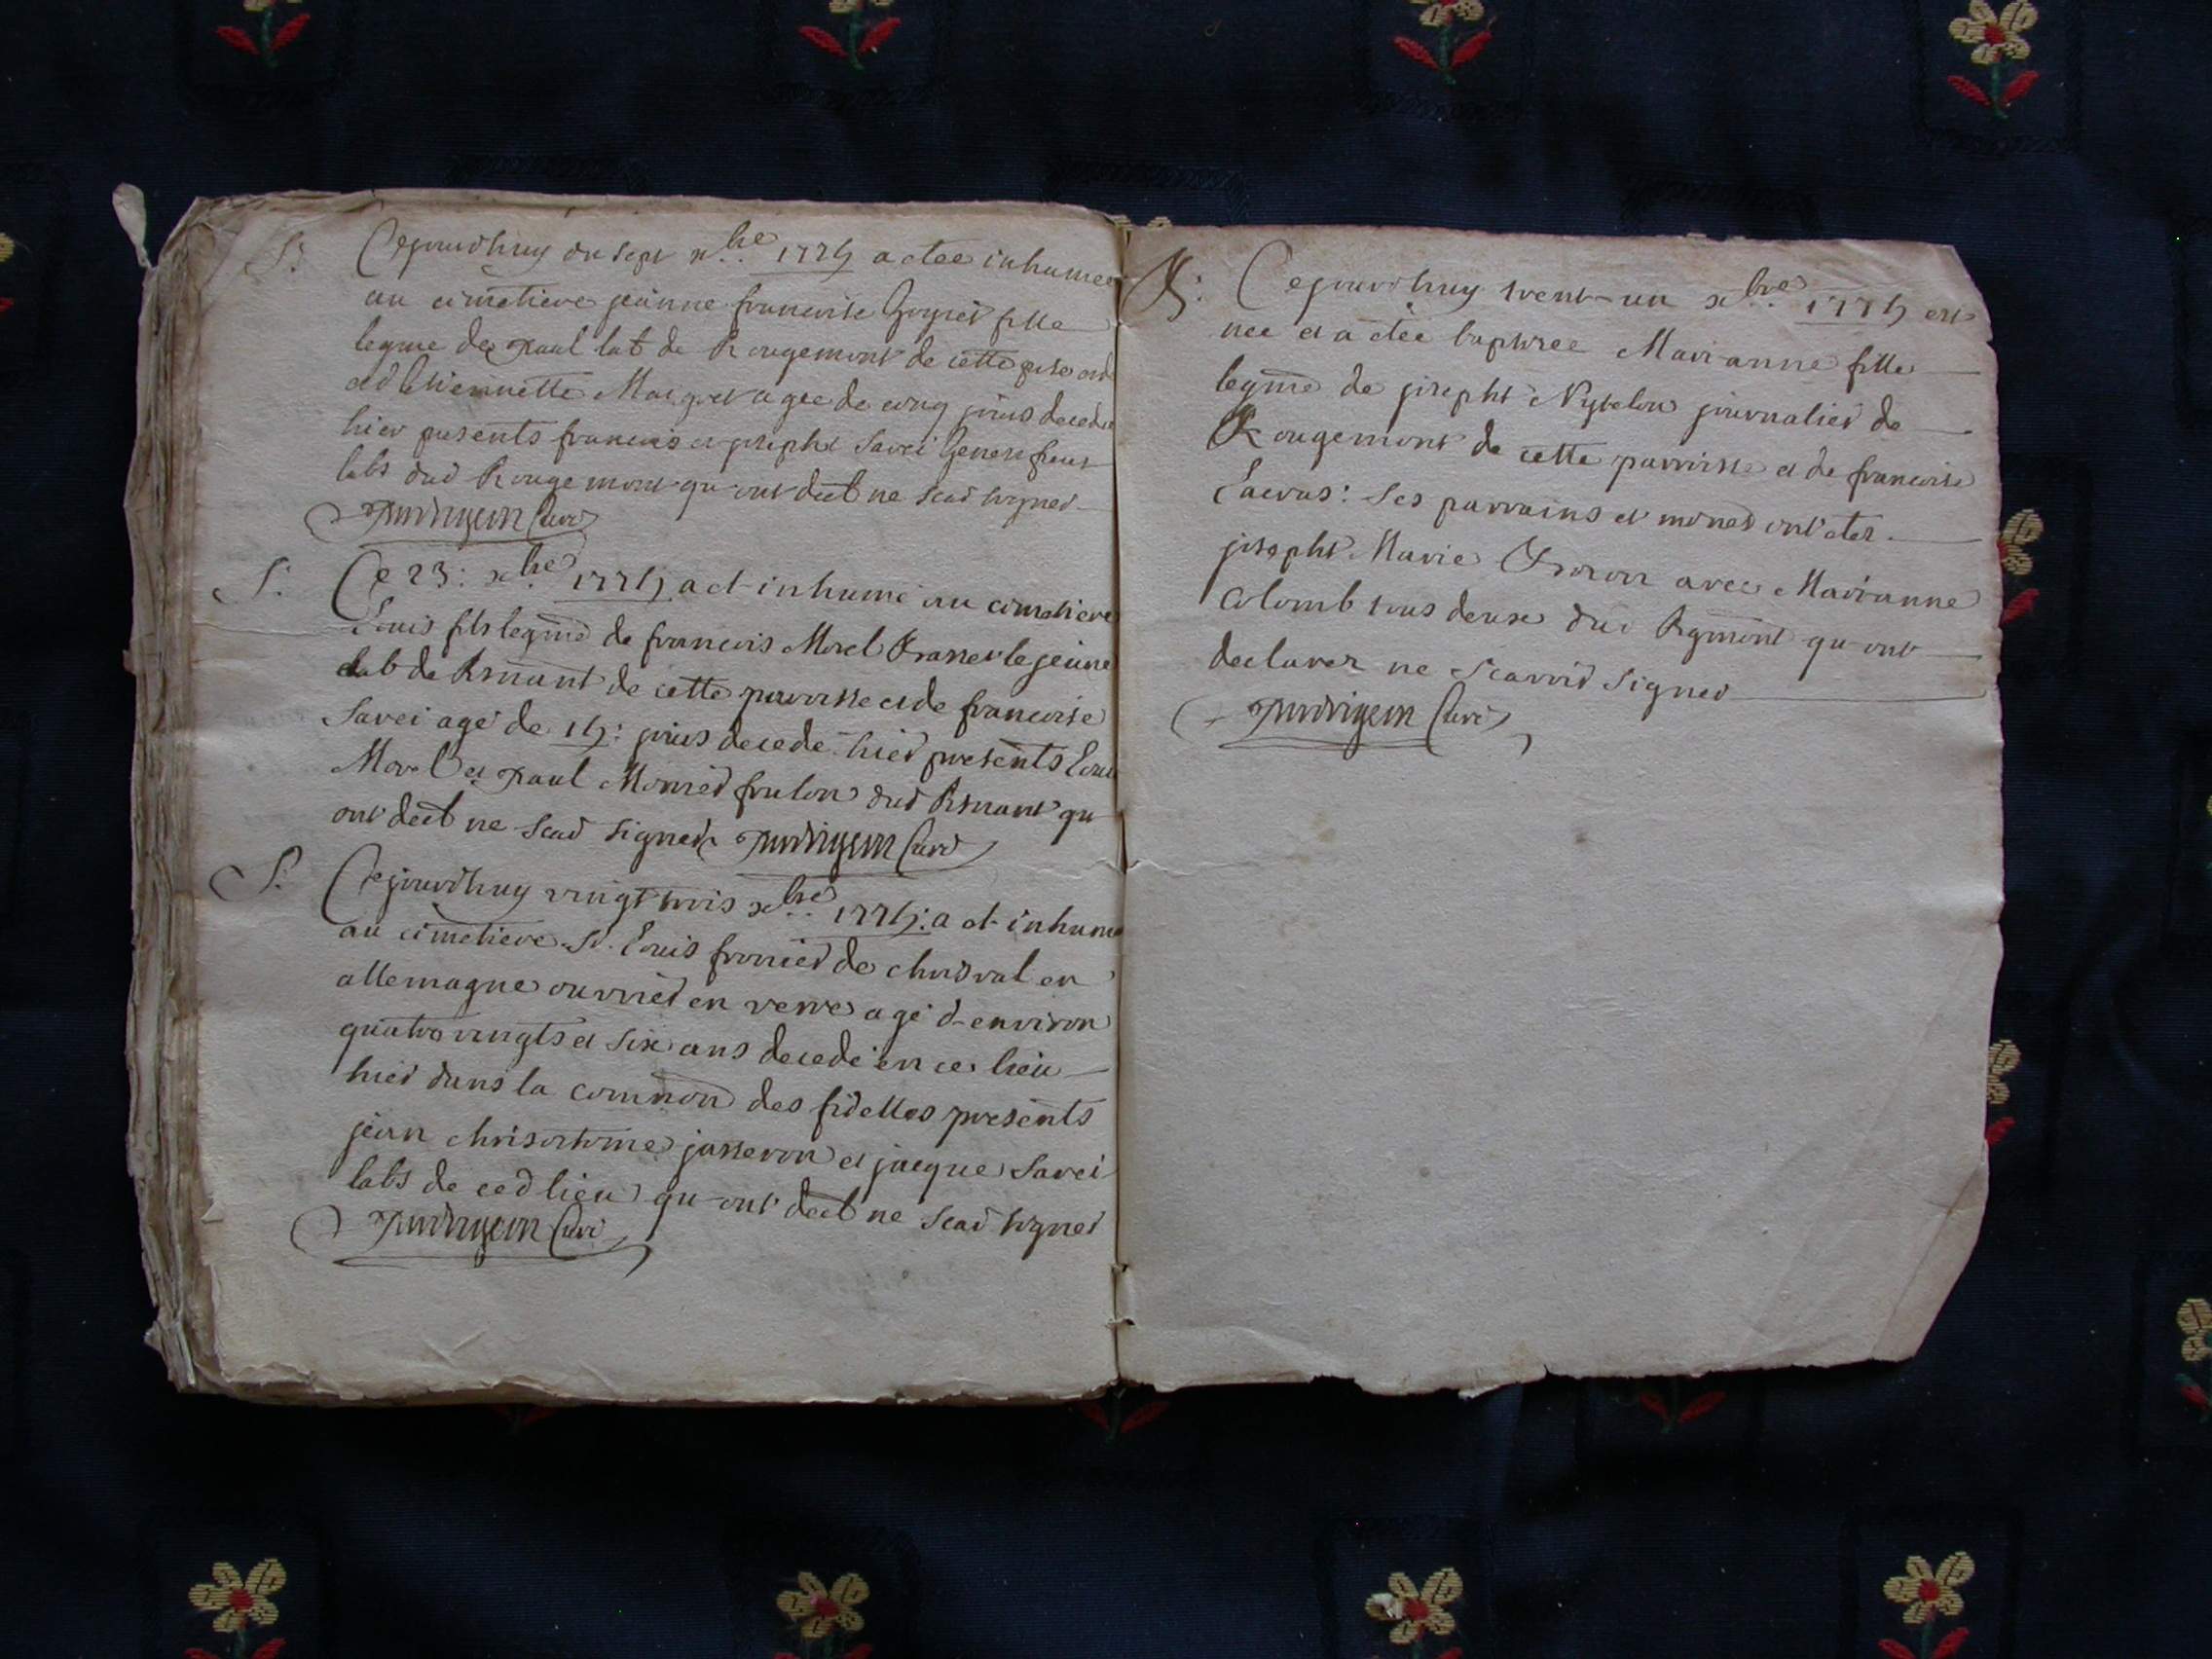 S: Cejourdhuy du sept xbre 1775 a etee inhumee
au cimetiere jeanne francoise fille
legme de paul lab de Rougemont de cette
et d'Etiennette agee de cinq jours decedee
hier presents francois et joseph Savei
labs dud Rougemont qu-ont declt ne scav signer
Curé
S: Ce 23: xbre 1775 a et inhumé au cimetiere
Louis fils legme de francois Morel le jeune
lab de de cette parroisse et de francoise
Savei agé de 15: jours decedé hier presents Louis
Morel et paul Monier dud qu
ont declt ne scav signer Curé
S: Cejourdhuy vingt trois xbre 1775: a et inhumé
au cimetiere Sr. Louis de en
allemagne ouvrier en verre agé d-environ
quatre vingts et six ans decedé en ce lieu
hier dans la common des fidelles presents
jean chrisostome jasseron et jacque Savei
labs de ced lieu qu-ont declt ne scav signer
Curé
B: Cejourdhuy trent-un xbre 1775 est
nee et a etee baptisee Marianne fille
legme de joseph journalier de
Rougemont de cette parroisse et de francoise
Ses parrains et ont etez
joseph Marie avec Marianne
Colomb tous deux dud Rgmont qu-ont
declarez ne scavoir signer
Curé